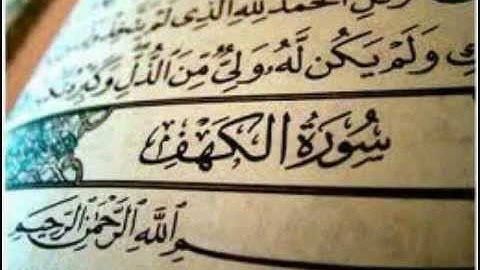 وَقُلِ الْحَمْدُ لِلَّهِ الَّذِي لَمْ يَتَّخِذْ
وَلَمْ يَكُن لَّهُ وَلِيٌّ مِّنَ الذُّلِّ وَكَبِّرْهُ
سُورَةُ الْكَهْفِ
بِسْمِ اللَّهِ الرَّحْمَٰنِ الرَّحِيمِ